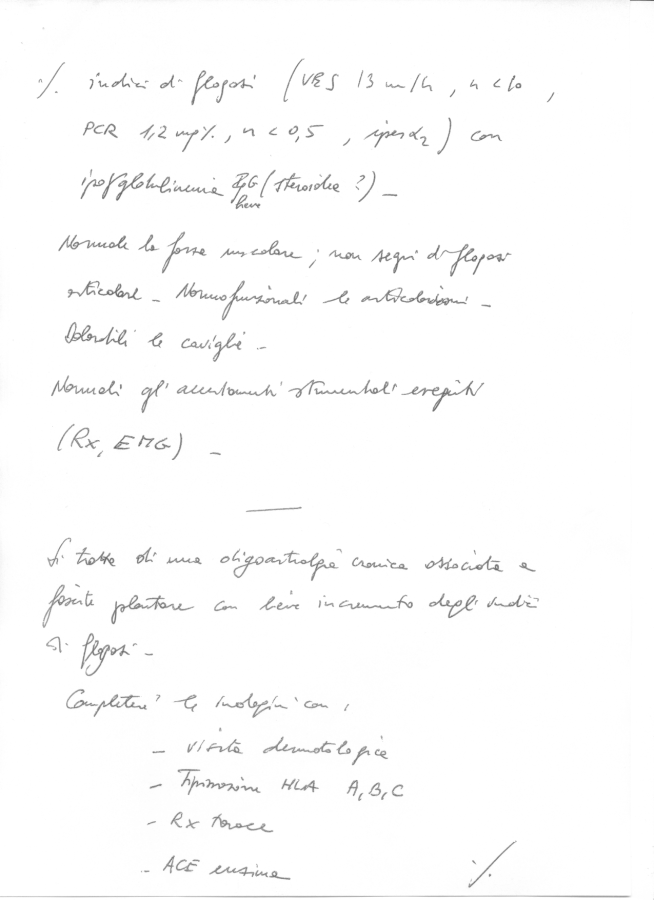 ./. indici di flogosi (VES 13 m/h, n < 10,
PCR 1,2 mg%, n < 0,5, iperα2) con
ipoγglobulinemia IgG (steroidea ?) -
lieve
Normale la forza muscolare; non segni di flogosi
articolare - Normofunzionali le articolazioni -
Dolorabili le caviglie -
Normali gli accertamenti strumentali eseguiti
(Rx, EMG) -
Si tratta di una oligoartralgia cronica associata a
fascite plantare con lieve incremento degli indici
di flogosi -
Completerei le indagini con:
- visita dermatologica
- Tipizzazione HLA A, B, C
- Rx torace
- ACE ensima
./.